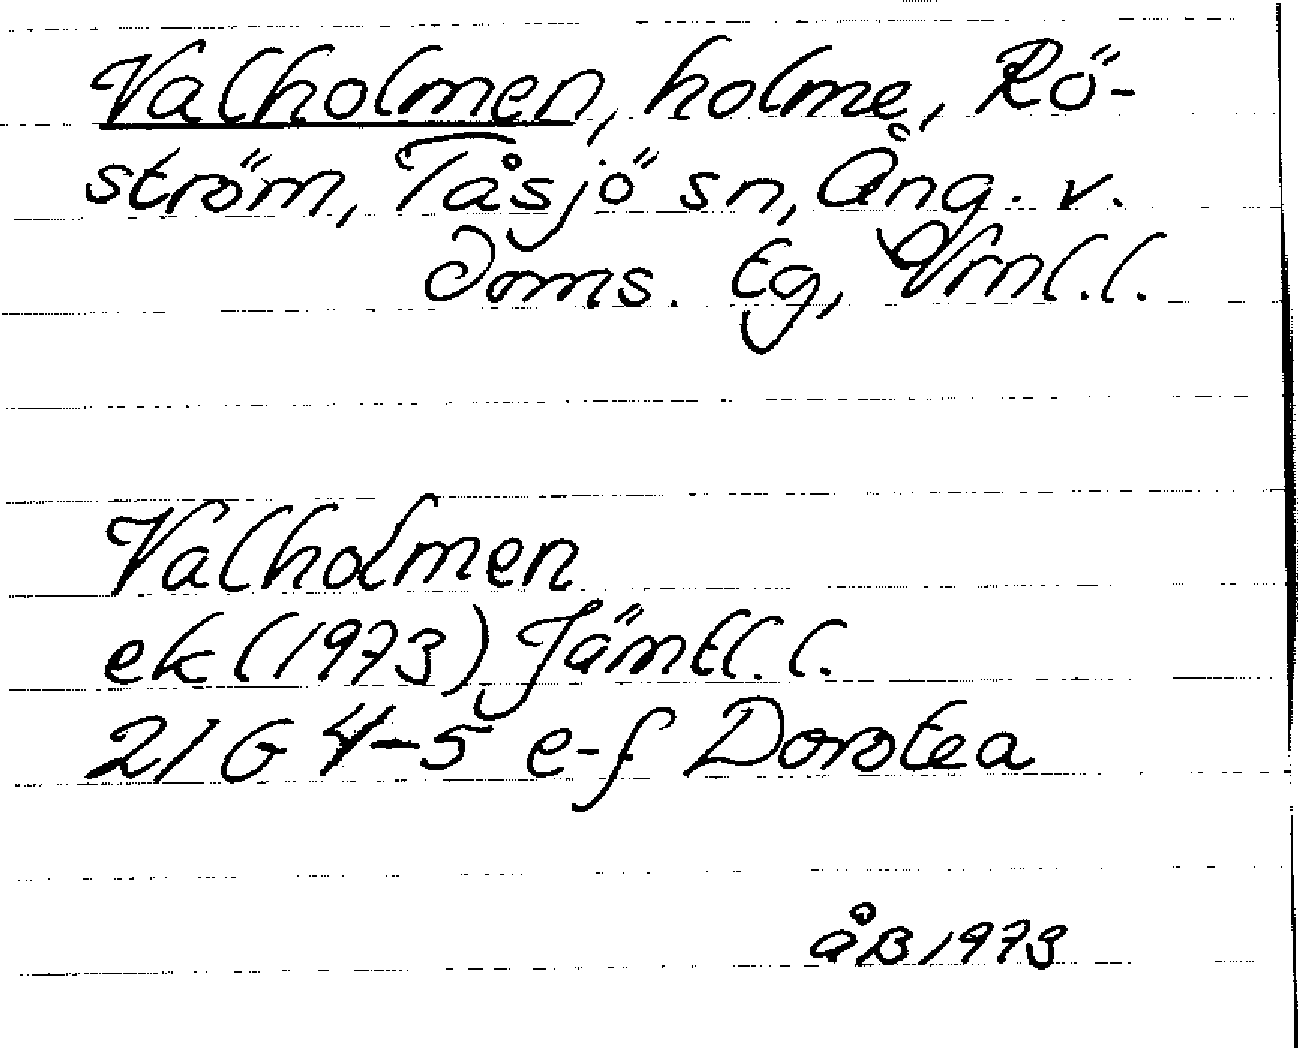 Valholmen, holme, Rö-
ström, Tåsjö sn, Ång. v.
Doms. tg, Vrnl.l.
Valholmen
ek (1973) Jämtl.l.
21G 4-5 e-f Dorotea
åB 1973